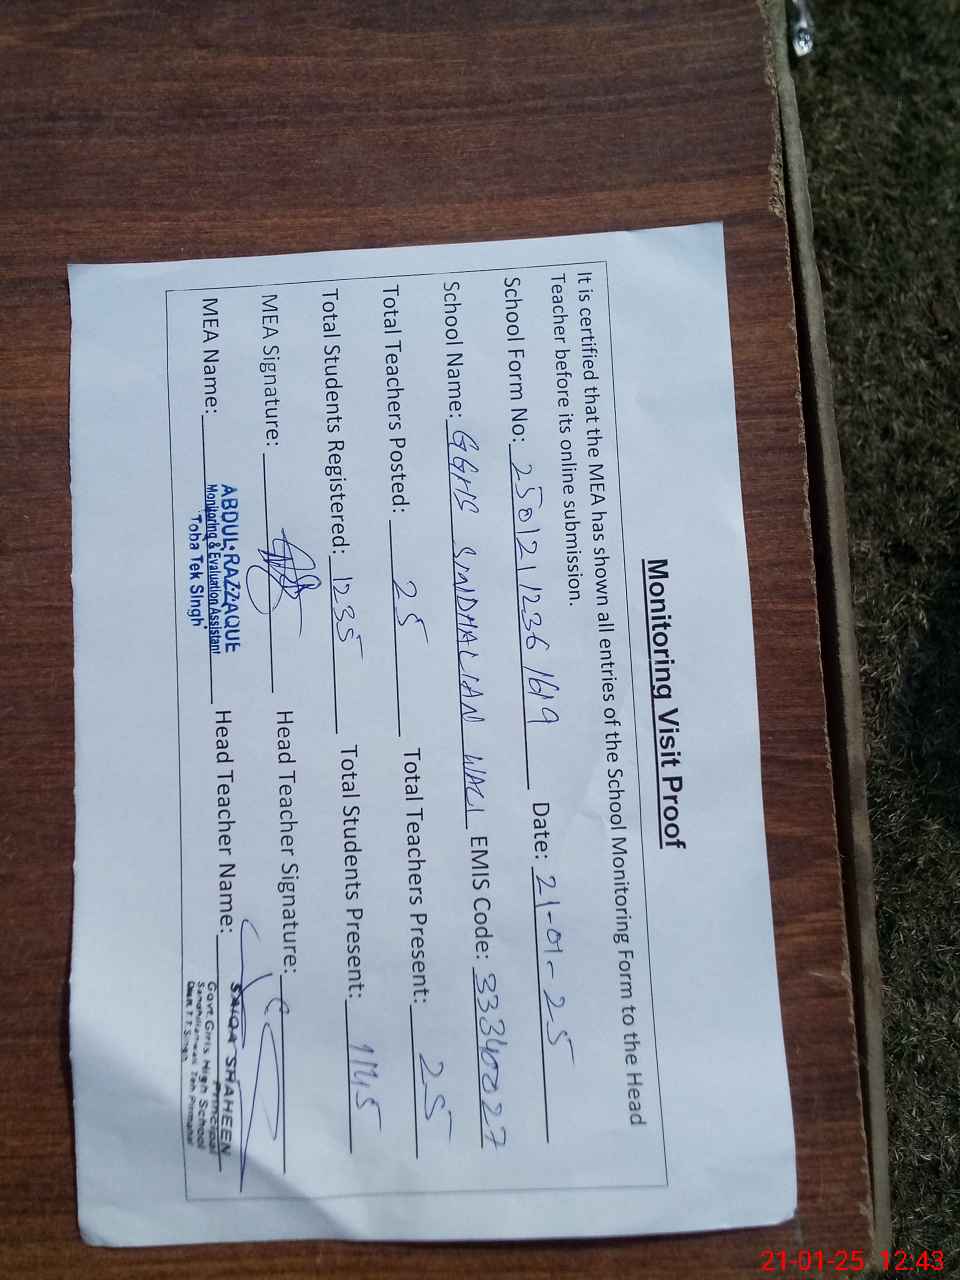 Monitoring Visit Proof
It is certified that the MEA has shown all entries of the School Monitoring Form to the Head
Teacher before its online submission.
School Form No: 250121 1236 1619 Date: 21-01-25
School Name: GGHS SINDHALIAN WALI EMIS Code: 33340027
Total Teachers Posted: 25 Total Teachers Present: 25
Total Students Registered: 1235 Total Students Present: 1145
MEA Signature: Head Teacher Signature:
MEA Name: ABDUL RAZZAQUE Head Teacher Name: SAIQA SHAHEEN
Monitoring & Evaluation Assistant Principal
Toba Tek Singh Govt. Girls High School
21-01-25 12:43